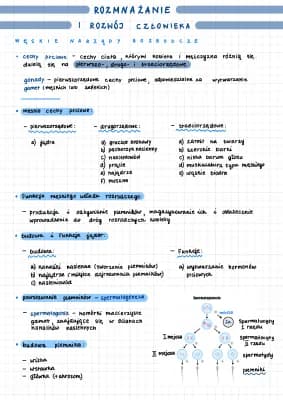 ROZMNAŻANIE
I ROZWÓJ CZŁOWIEKA
MĘSKIE NARZĄDY ROZRODCZE
• cechy płciowe - cechy ciała, którymi kobieta i mężczyzna różnią się
dzielą się na pierwszo-, drugo- i trzeciorzędowe
gonady - pierwszorzędowe cechy płciowe, odpowiedzialne za wytwarzanie
gamet (męskich lub żeńskich)
• męskie cechy płciowe:
- pierwszorzędowe:
a) jądra
- drugorzędowe:
a) gruczoł krokowy
b) pęcherzyk nasienny
c) nasieniowód
d) prącie
e) najądrza
f) moszna
- trzeciorzędowe:
a) zarost na twarzy
b) szerokie barki
c) niska barwa głosu
d) umięśnienie typu męskiego
e) wąskie biodra
• funkcje męskiego układu rozrodczego
- produkcja i odżywianie plemników, magazynowanie ich i ostatecznie
wprowadzenie do dróg rozrodczych kobiety
• budowa i funkcja jąder:
- budowa:
a) kanaliki nasienne (tworzenie plemników)
b) najądrza (miejsce dojrzewania plemników)
c) nasieniowód
- funkcje:
a) wytwarzanie hormonów
płciowych
• powstawanie plemników - spermatogeneza
- spermatogonia - komórki macierzyste
gamet, znajdujące się w ścianach
kanalików nasiennych
• budowa plemnika:
- witka
- wstawka
- główka (+akrosom)
2n
I mejoza
II mejoza
spermatocyty
I rzędu
spermatocyty
II rzędu
spermatydy
plemniki